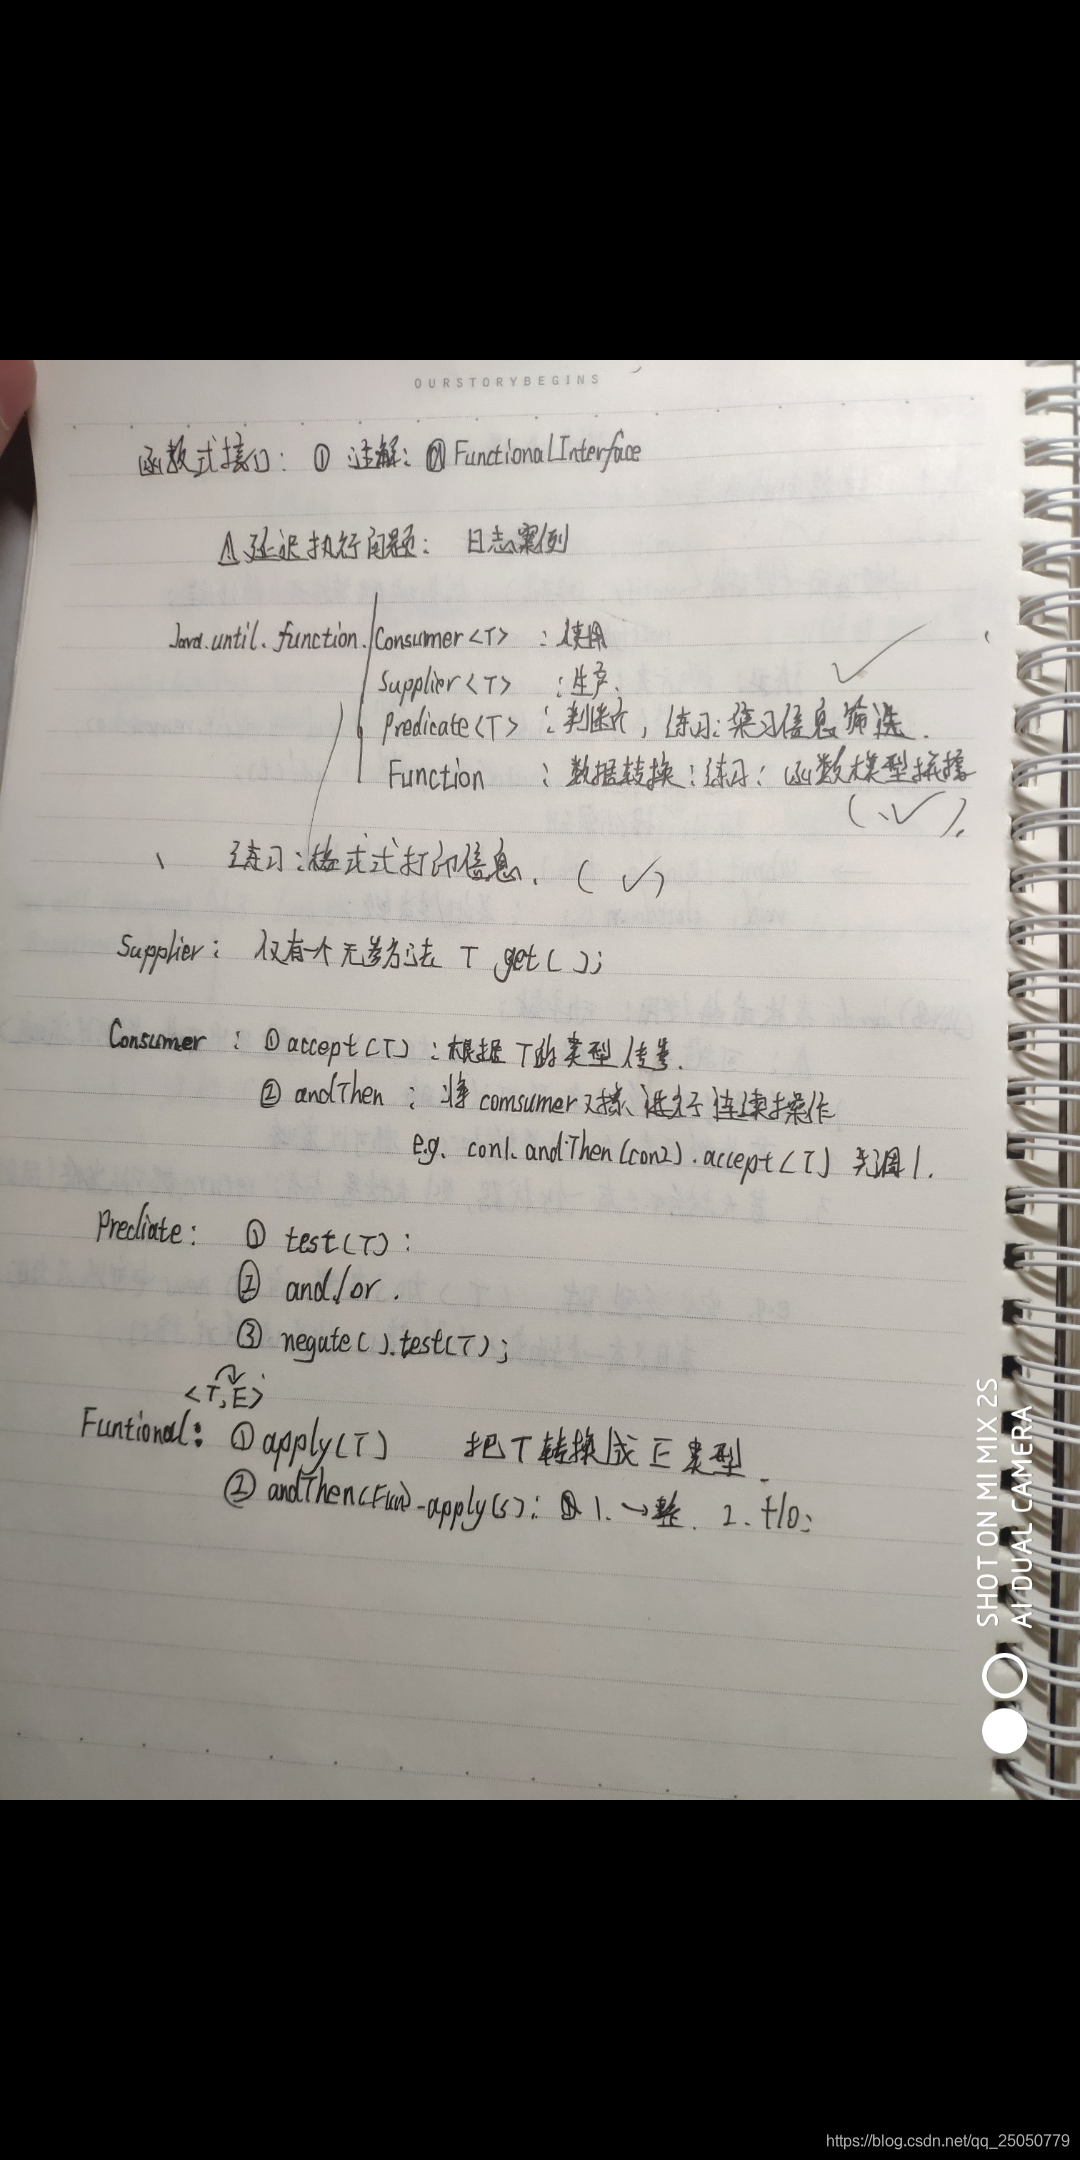 OURSTORYBEGINS
函数式接口: ① 注解: @FunctionalInterface
△ 延迟执行问题: 日志案例
Java.until.function. Consumer<T> : 使用
Supplier<T> : 生产.
Predicate<T> : 判断, 练习: 练习信息筛选.
Function : 数据转换: 练习: 函数模型拼接
(√).
练习: 格式式打印信息. (√)
Supplier: 仅有一个无参方法 T get();
Consumer: ① accept(T): 根据T的类型传参.
② andThen: 将comsumer对接、进行连续操作
e.g. con1.andThen(con2).accept(T) 先调1.
Prediate: ① test(T):
② and/or.
③ negate().test(T);
<T,E>
Funtional: ① apply(T) 把T转换成E类型.
② andThen(Fun).apply(s): 1.→整. 2.+10;
SHOT ON MI MIX 2S
AI DUAL CAMERA
https://blog.csdn.net/qq_25050779